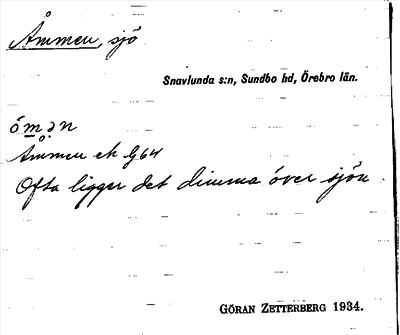 Åmmen, sjö
Snavlunda s:n, Sundbo hd, Örebro län.
óm̥ən
Åmmen ek G64
Ofta ligger det dimma över sjön.
GÖRAN ZETTERBERG 1934.